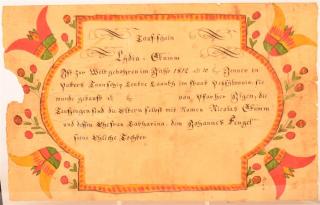 Tauf-schein
Lydia - Grimm
Ist zur Welt gebohren im Jahr 1812 10 Jenner in
Potters Townschip Centre Caunty im Staat Penssilvania, sie
wurde getauft von Pfarher Ilgen, die
Taufzeugen sind die Eltern selbst mit Namen Nicolas Grimm
und dessen Ehefrau Catharina, dem Johannes Fengel
seine Ehliche Tochter